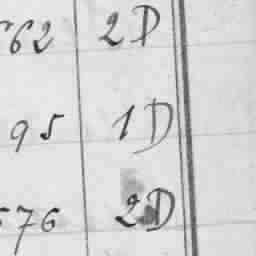 562 2D
95 1D
576 2D